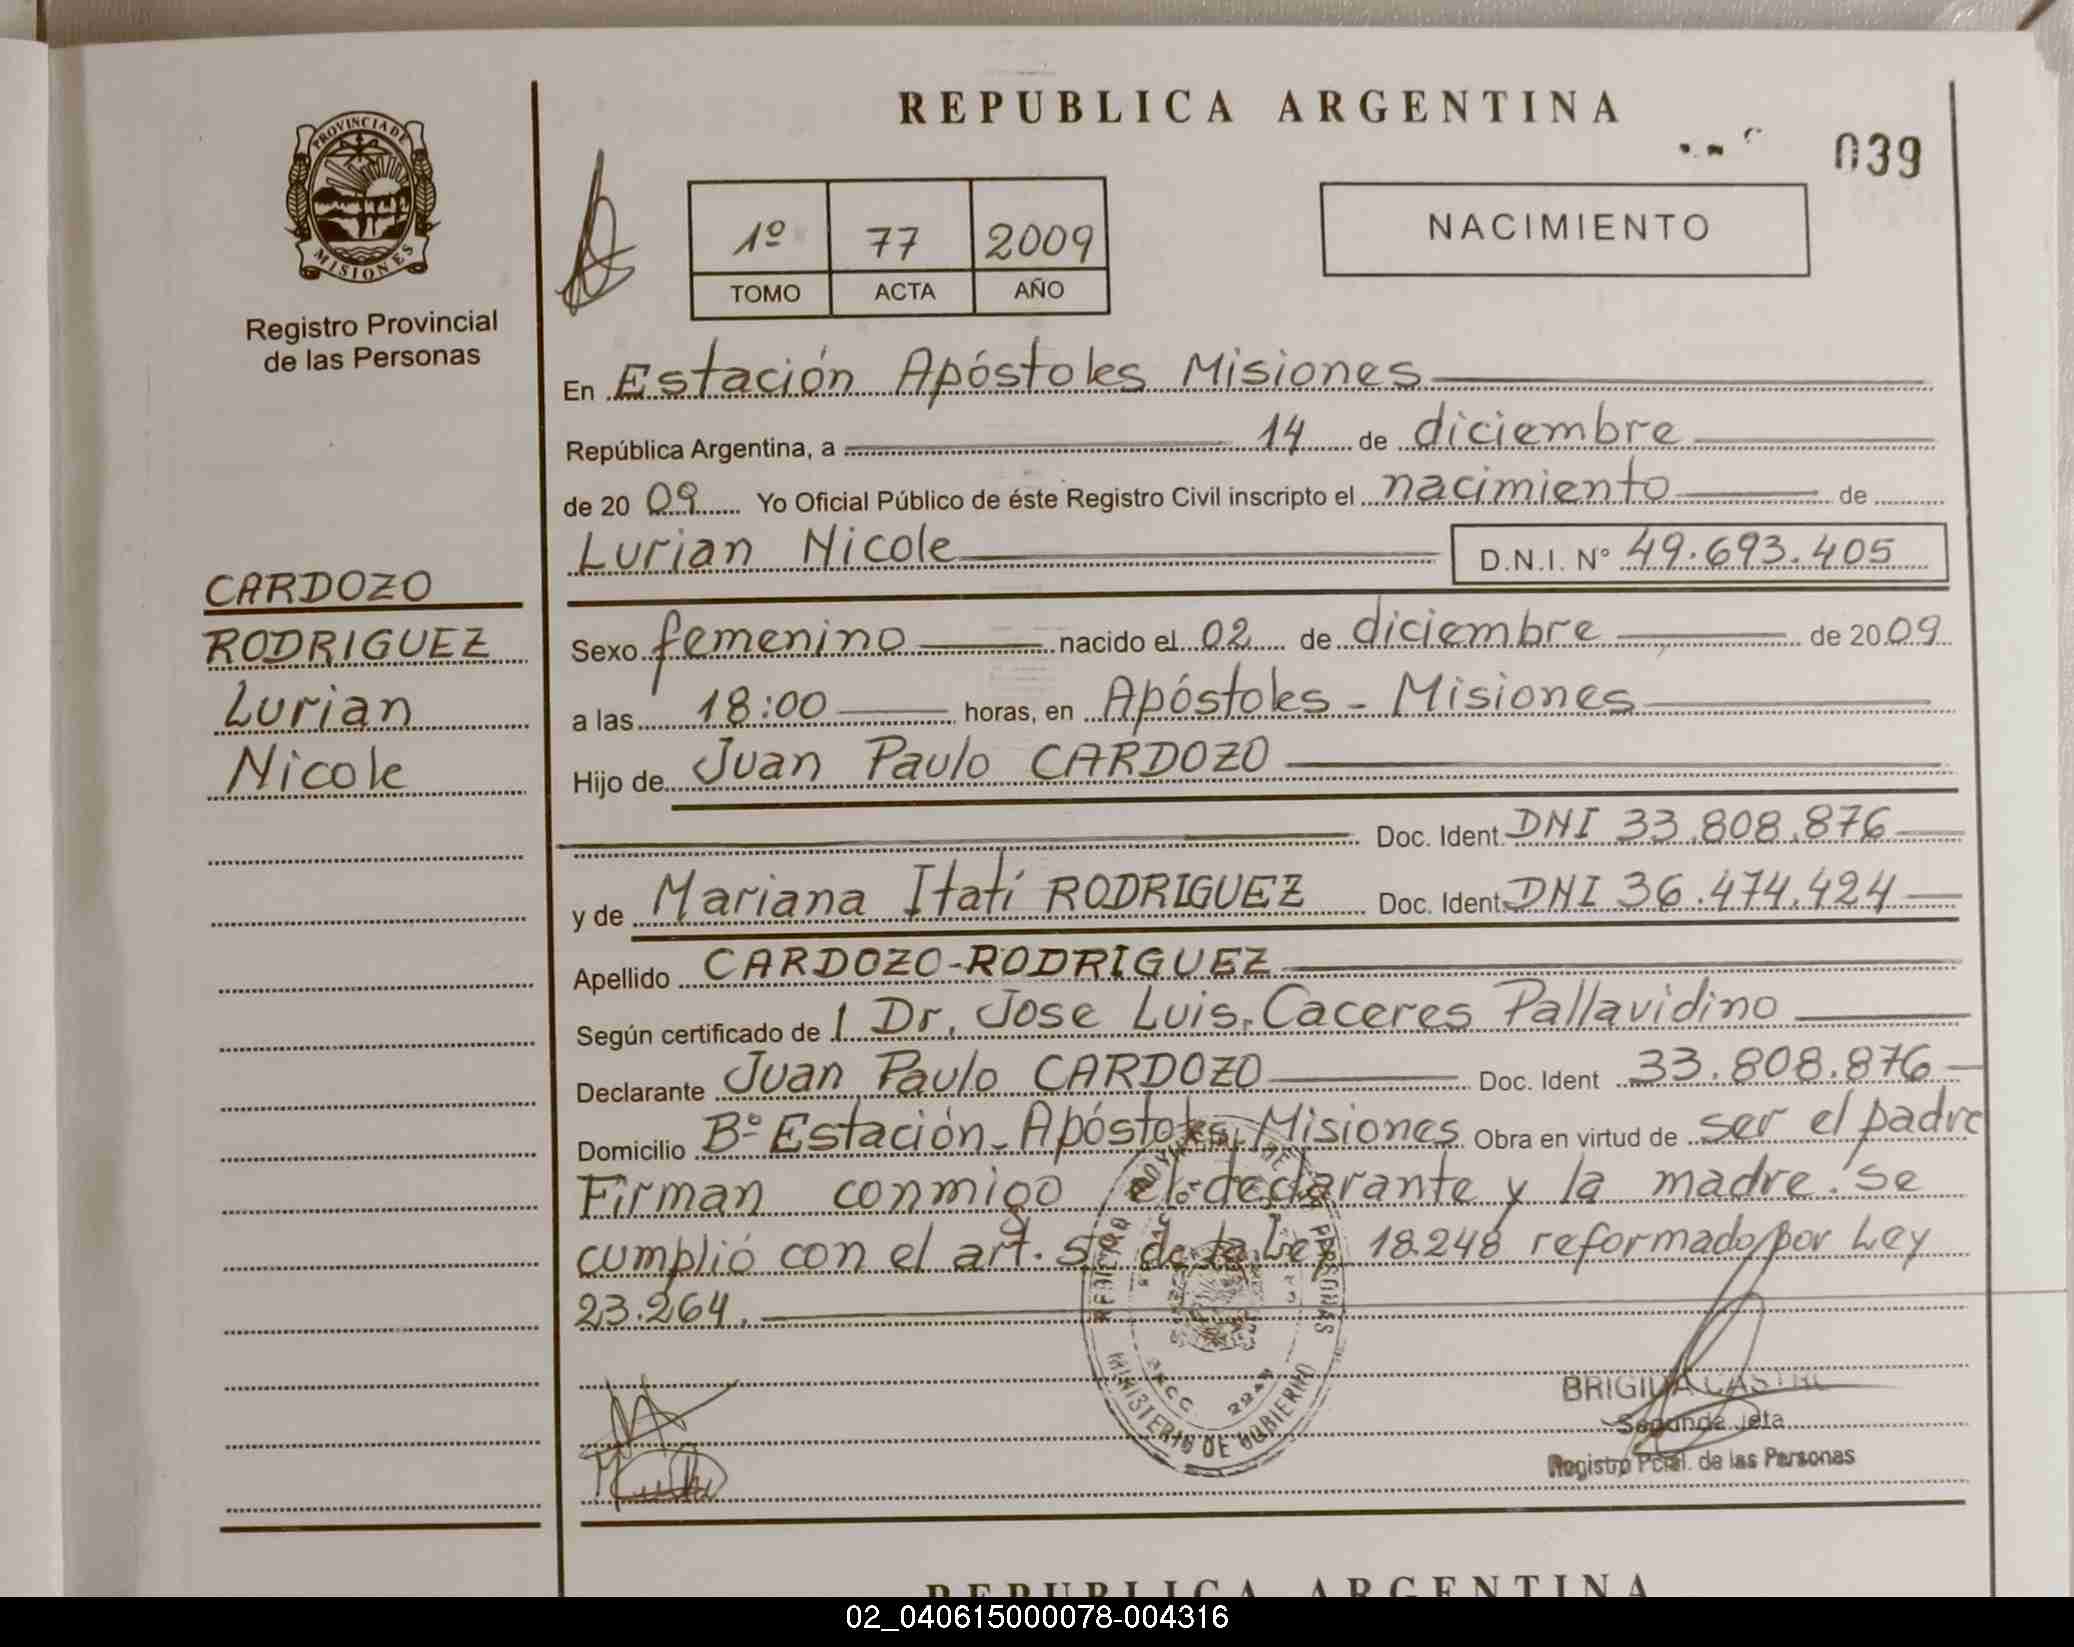 REPUBLICA ARGENTINA
039
PROVINCIA DE
MISIONES
Registro Provincial
de las Personas
1º 77 2009
TOMO ACTA AÑO
NACIMIENTO
En Estación Apóstoles Misiones
República Argentina, a 14 de diciembre
de 20 09 Yo Oficial Público de éste Registro Civil inscripto el nacimiento de
Lurian Nicole D.N.I. Nº 49.693.405
CARDOZO
RODRIGUEZ
Lurian
Nicole
Sexo femenino nacido el 02 de diciembre de 2009
a las 18:00 horas, en Apóstoles - Misiones
Hijo de Juan Paulo CARDOZO
Doc. Ident. DNI 33.808.876
y de Mariana Itatí RODRIGUEZ Doc. Ident. DNI 36.474.424
Apellido CARDOZO-RODRIGUEZ
Según certificado de Dr. Jose Luis Caceres Pallavidino
Declarante Juan Paulo CARDOZO Doc. Ident 33.808.876
Domicilio Bº Estación - Apóstoles Misiones Obra en virtud de ser el padre
Firman conmigo el declarante y la madre. Se
cumplió con el art. 5º de la Ley 18.248 reformado por Ley
23.264.
MINISTERIO DE GOBIERNO
BRIGIDA CASTRO
Segunda Jefa
Registro Pcial. de las Personas
REPUBLICA ARGENTINA
02_040615000078-004316